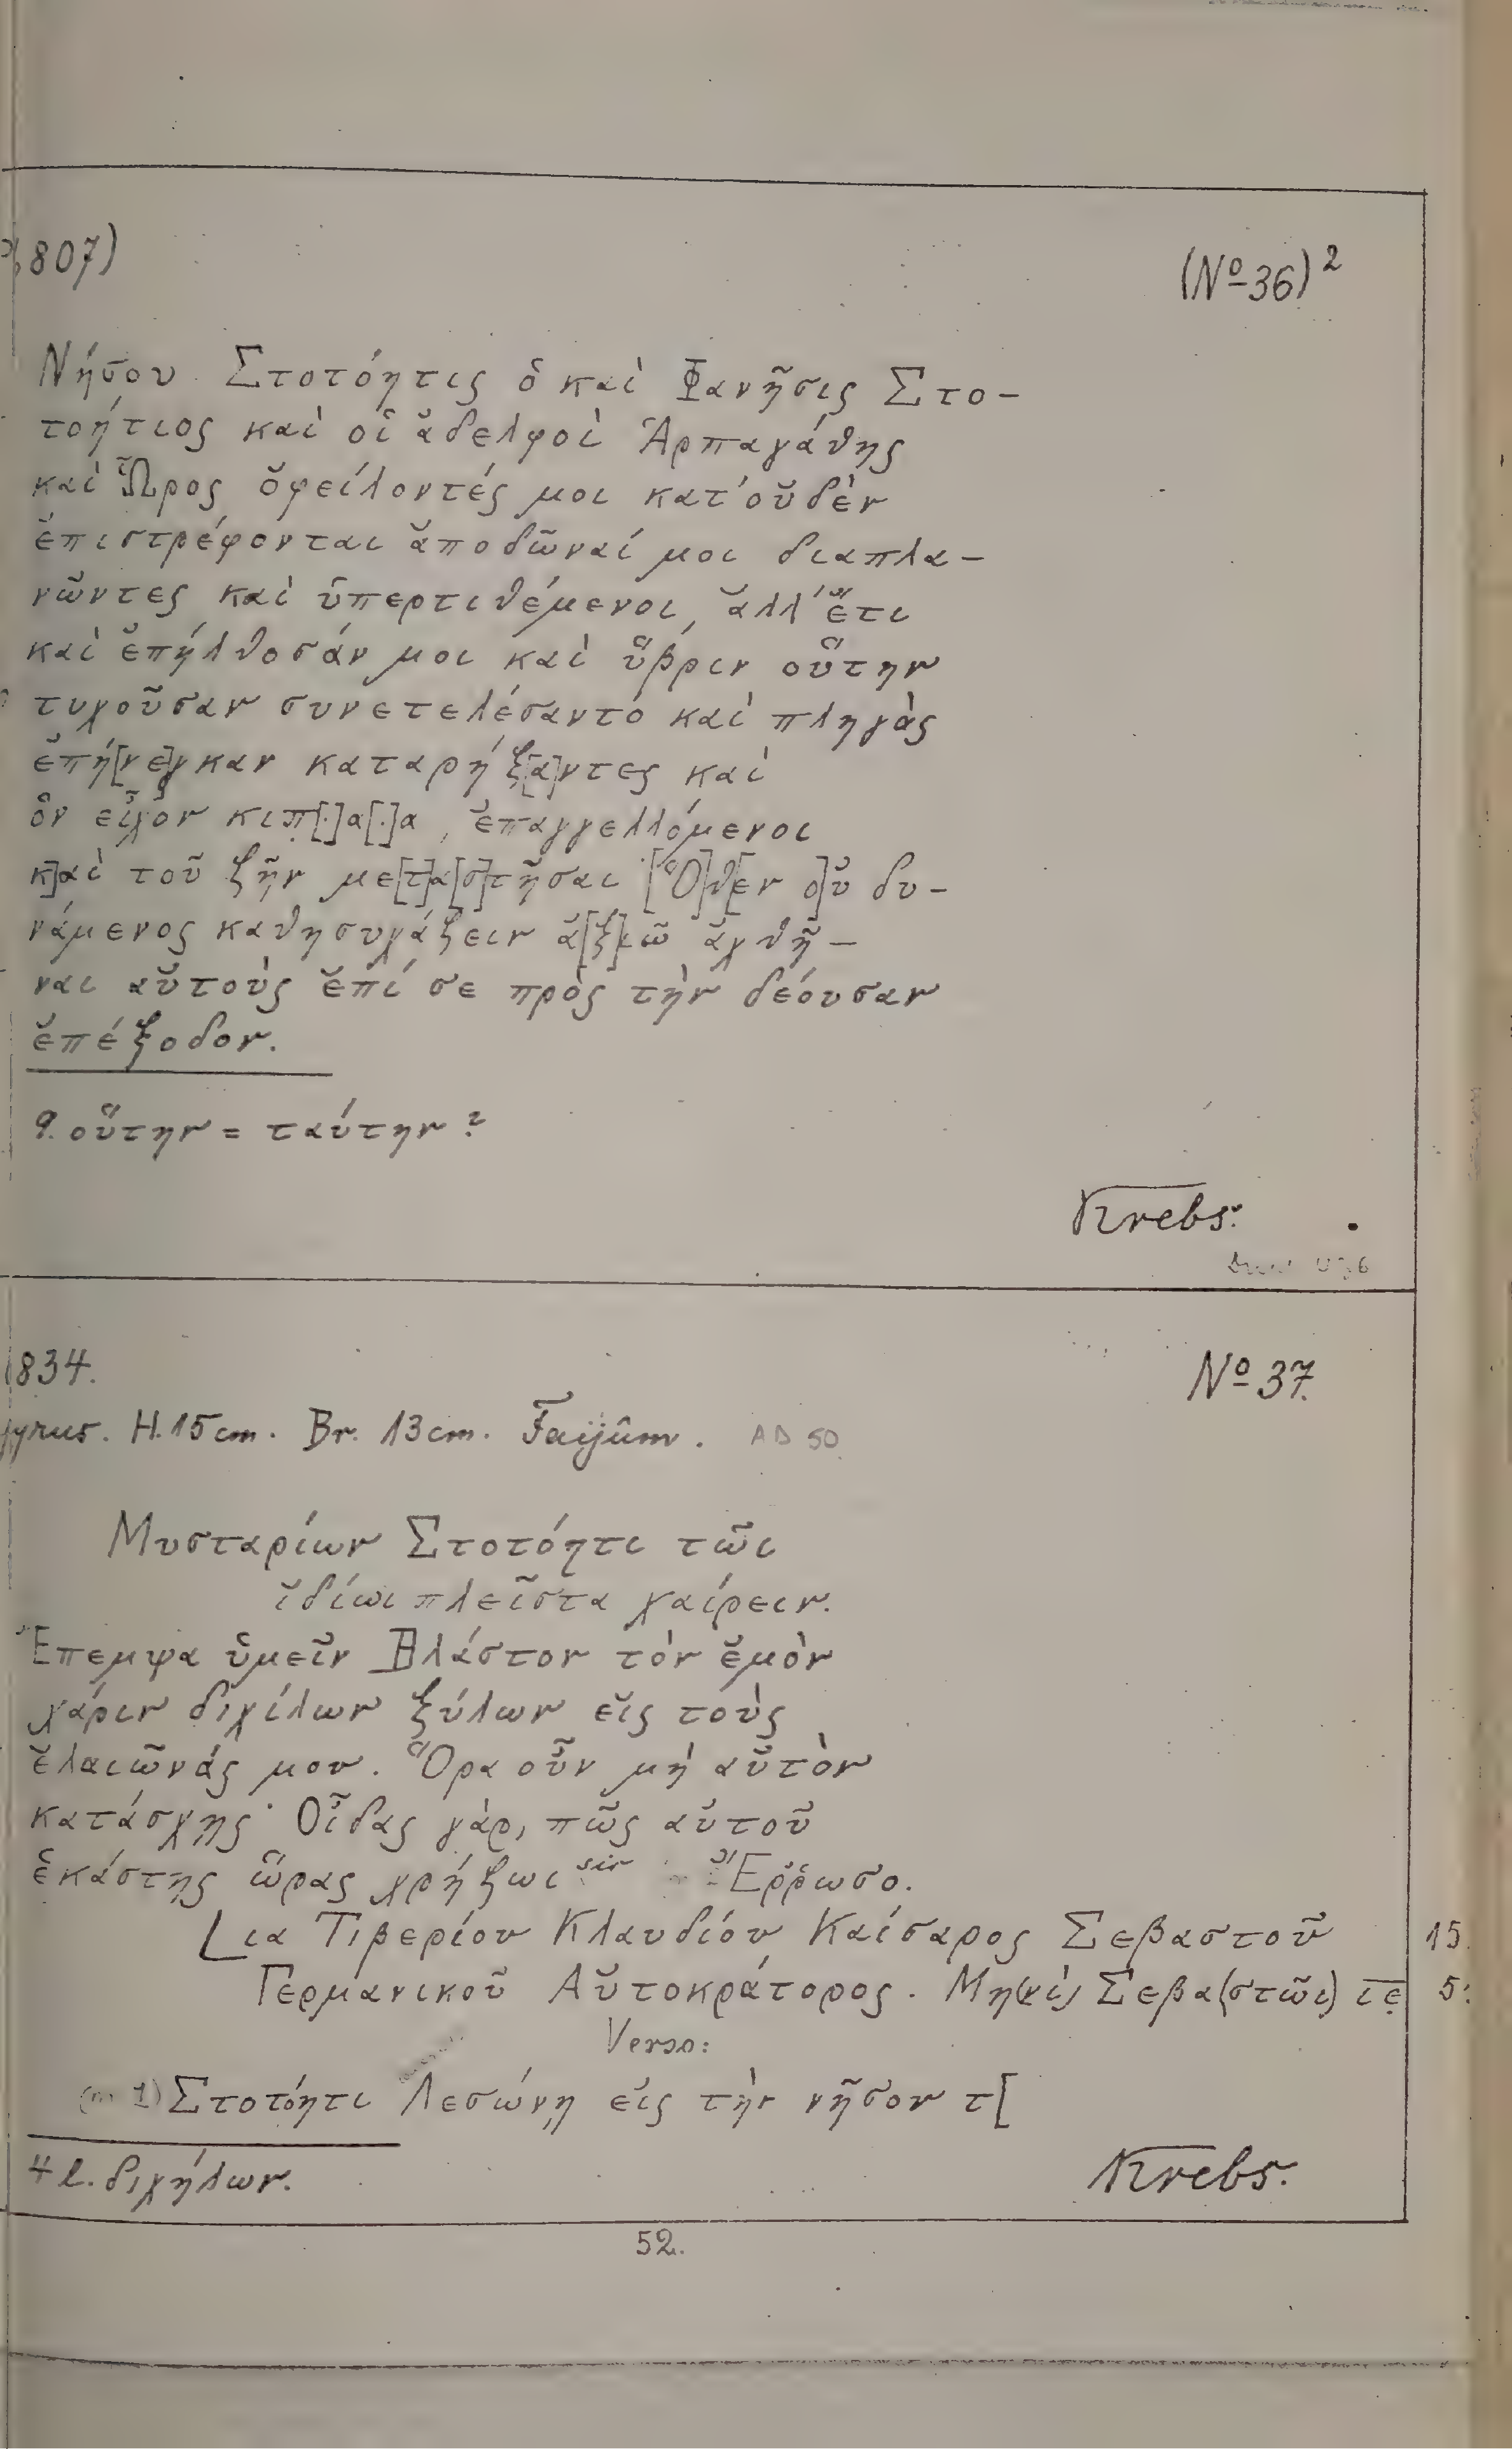 807)
(No 36)²
Νήσου Στοτόητις ὁ καὶ Φανῆσις Στο-
τοήτιος καὶ οἱ ἀδελφοὶ Ἁρπαγάθης
καὶ Ὧρος ὀφείλοντές μοι κατ' οὐδὲν
ἐπιστρέφονται ἀποδῶναί μοι διαπλα-
νῶντες καὶ ὑπερτιθέμενοι, ἀλλ' ἔτι
καὶ ἐπήλθοσάν μοι καὶ ὕβριν οὕτην
τυχοῦσαν συνετελέσαντό καὶ πληγὰς
ἐπή[νε]γκαν καταρήξ[α]ντες καὶ
ὃν εἶχον κιπ[.]α[.]α, ἐπαγγελλόμενοι
κ]αὶ τοῦ ζῆν με[τ]α[σ]τῆσαι [Ὅ]θ[εν ο]ὐ δυ-
νάμενος καθησυχάζειν ἀ[ξ]ιῶ ἀχθῆ-
ναι αὐτοὺς ἐπί σε πρὸς τὴν δέουσαν
ἐπέξοδον.
9. οὕτην = ταύτην?
Krebs.
834.
No 37.
yrus. H. 15 cm. Br. 13 cm. Faijûm. AD 50
Μυσταρίων Στοτόητι τῶι
ἰδίωι πλεῖστα χαίρειν.
Ἔπεμψα ὑμεῖν Βλάστον τὸν ἐμὸν
χάριν διχίλων ξύλων εἰς τοὺς
ἐλαιῶνάς μου. Ὅρα οὖν μὴ αὐτὸν
κατάσχῃς· Οἶδας γὰρ, πῶς αὐτοῦ
ἑκάστης ὥρας χρήζωι Ἔρρωσο.
L ια Τιβερίου Κλαυδίου Καίσαρος Σεβαστοῦ 15.
Γερμανικοῦ Αὐτοκράτορος. Μη(νὶ) Σεβα(στῶι) ιε 5
Verso:
Στοτόητι Λεσώνῃ εἰς τὴν νῆσον τ[
4 l. διχήλων.
Krebs.
52.